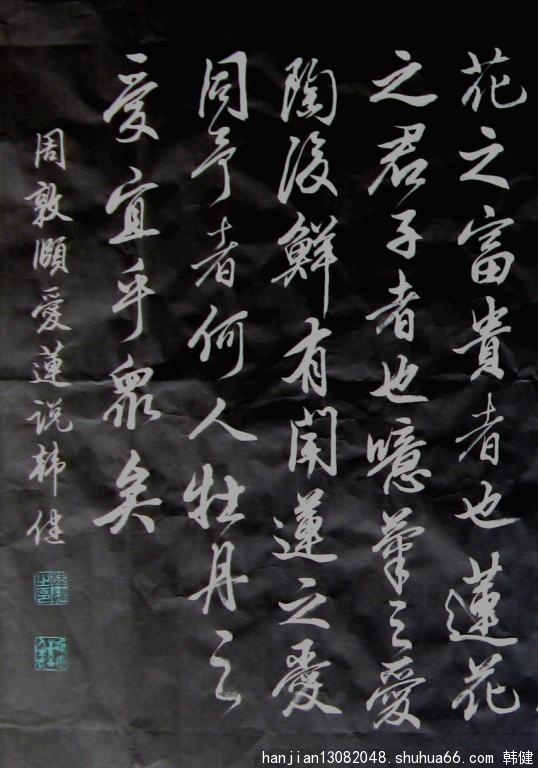 花之富貴者也蓮花
之君子者也噫菊之愛
陶後鮮有聞蓮之愛
同予者何人牡丹之
愛宜乎眾矣
周敦頤愛蓮说韩健
hanjian13082048.shuhua66.com 韩健